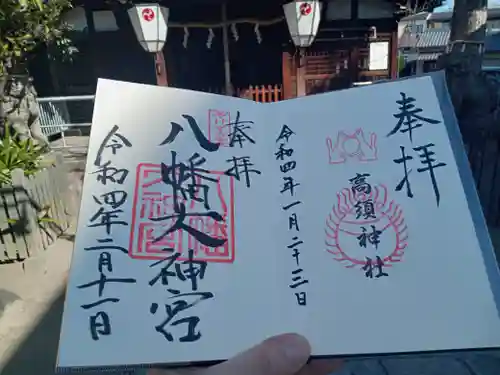 奉拝
高須神社
令和四年一月二十三日
奉拝
八幡大神宮
令和四年二月十一日